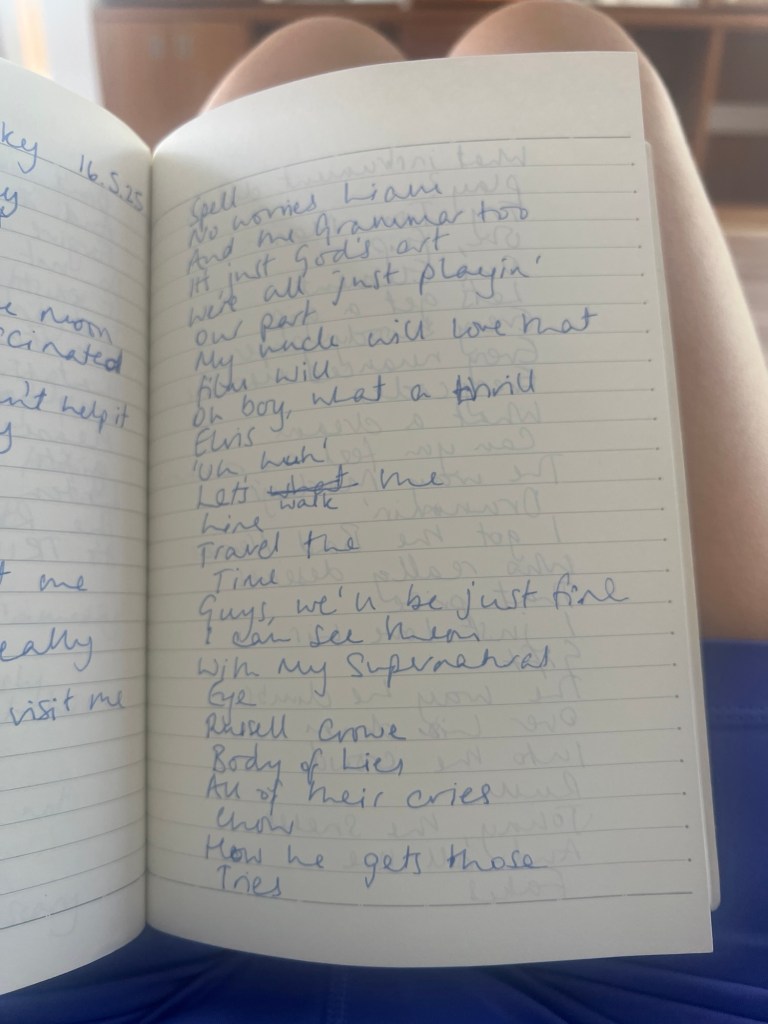 ky 16.5.25
y
e moon
ccinated
n't help it
y
t me
eally
visit me
Spell
No worries Liam
And the Grammar too
It just God's art
We're all just playin'
our part
My uncle will love that
film will
Oh boy, what a thrill
Elvis
'Uh huh'
Lets walk the
Line
Travel the
Time
Guys, we'll be just fine
I can see them
With my Supernatural
Eye
Russell Crowe
Body of Lies
All of their cries
Chow
How he gets those
Tries